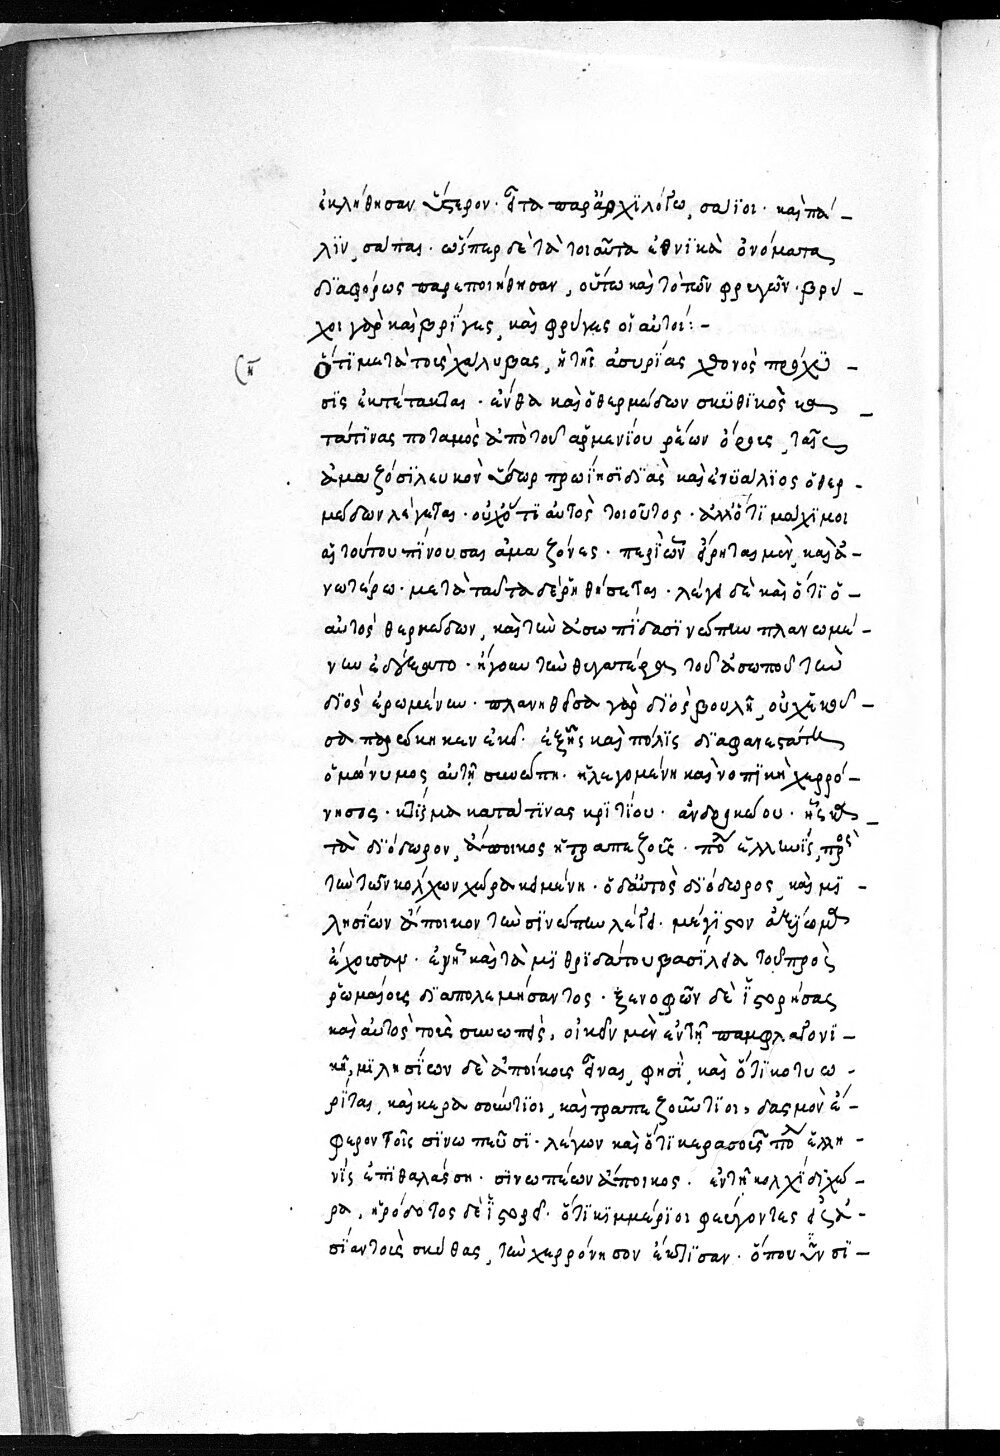 ἐκλήθησαν ὕστερον. εἶτα παρ' ἀρχιλόχω, σάϊοι. καὶ πά-
λιν, σάπαι. ὥσπερ δὲ τὰ τοιαῦτα ἐθνικὰ ὀνόματα
διαφόρως παρεποιήθησαν, οὕτω καὶ τὸ τῶν φρυγῶν. βρύ-
γοι γὰρ καὶ βρίγες, καὶ φρύγες οἱ αὐτοί:-
Ὅτι μετὰ τοὺς χάλυβας, ἡ τῆς ἀσυρίας χθονὸς πρόχυ-
σις ἐκτέταται. ἔνθα καὶ ὁ θερμώδων σκυθικὸς κα-
τά τινας ποταμὸς ἀπὸ τοῦ ἀρμενίου ῥέων ὄρους, ταῖς
ἀμαζόσι λευκὸν ὕδωρ προΐησι διὸ καὶ ἐνυάλιος ὁ θερ-
μώδων λέγεται. οὐχ' ὅτι αὐτὸς τοιοῦτος. ἀλλ' ὅτι μάχιμοι
αἱ τούτου πίνουσαι ἀμαζόνες. περὶ ὧν εἴρηται μὲν, καὶ ἀ-
νωτέρω. μετὰ ταῦτα δὲ ῥηθήσεται. λέγει δὲ καὶ ὅτι ὁ
αὐτὸς θερμώδων, καὶ τὴν ἀσωπίδα σινώπην πλανωμέ-
νην ἐδέξατο. ἤγουν τὴν θυγατέρα τοῦ ἀσωποῦ τὴν
διὸς ἐρωμένην. πλανηθεῖσα γὰρ διὸς βουλῆ, οὐχ' ἑκοῦ-
σα παρῴκησεν ἐκεῖ. ἐξ ἧς καὶ πόλις διαφανεστάτη
ὁμώνυμος αὐτῆ σινώπη. ἡ λεγομένη καὶ νοτικὴ χερρό-
νησος. κτίσμα κατά τινας κριτίου. ἀνδρὸς κώου. ἧς κα-
τὰ διόδωρον, ἄποικος ἡ τραπεζοῦς. πόλις ἑλληνὶς, πρὸς
τὴν τῶν κόλχων χώρα κειμένη. ὁ δ' αὐτὸς διόδωρος, καὶ μι-
λησίων ἄποικον τὴν σινώπην λέγει. μέγιστον ἀξίωμα
ἔχουσαν. ἐν ἧ καὶ τὰ μιθριδάτου βασίλεια τοῦ πρὸς
ῥωμαίους διαπολεμήσαντος. ξενοφῶν δὲ ἱστορήσας
καὶ αὐτὸς τοὺς σινωπεῖς, οἰκεῖν μὲν ἐν τῆ παμφλαγονι-
κῆ, μιλησίων δὲ ἀποίκους εἶναι, φησὶ, καὶ ὅτι κοτυω-
ρῖται, καὶ κερασούντιοι, καὶ τραπεζούντιοι, δασμὸν ἔ-
φερον τοῖς σινωπεῦσι. λέγων καὶ ὅτι κερασοῦς πόλις ἑλλη-
νὶς ἐπὶ θαλάσση. σινωπέων ἄποικος. ἐν τῆ κολχίδι χώ-
ρα. ἡρόδοτος δὲ ἱστορεῖ. ὅτι κιμμέριοι φεύγοντες εἰς ἀ-
σίαν τοὺς σκύθας, τὴν χερρόνησον ἔκτισαν. ὅπου νῦν σι-